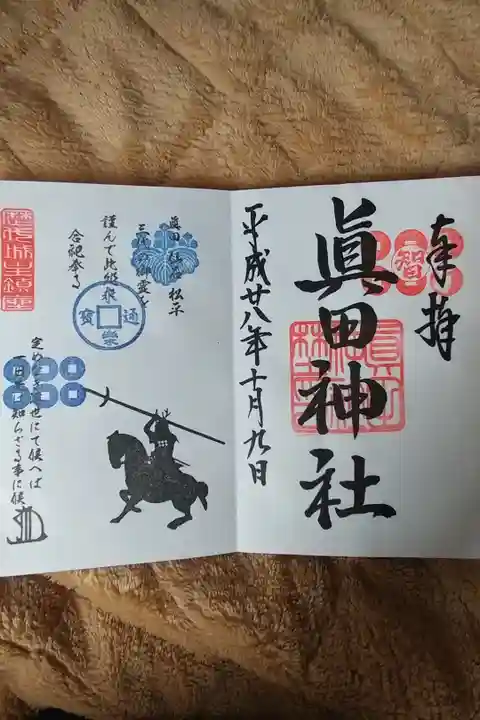 奉拝
智
眞田神社
平成廿八年十月九日
眞田 仙石 松平
三代の御霊を
謹んで此処に
合祀奉る
歴代城主鎮霊
通
寳
定めなき浮世にて候へば
一日先は知らざる事に候